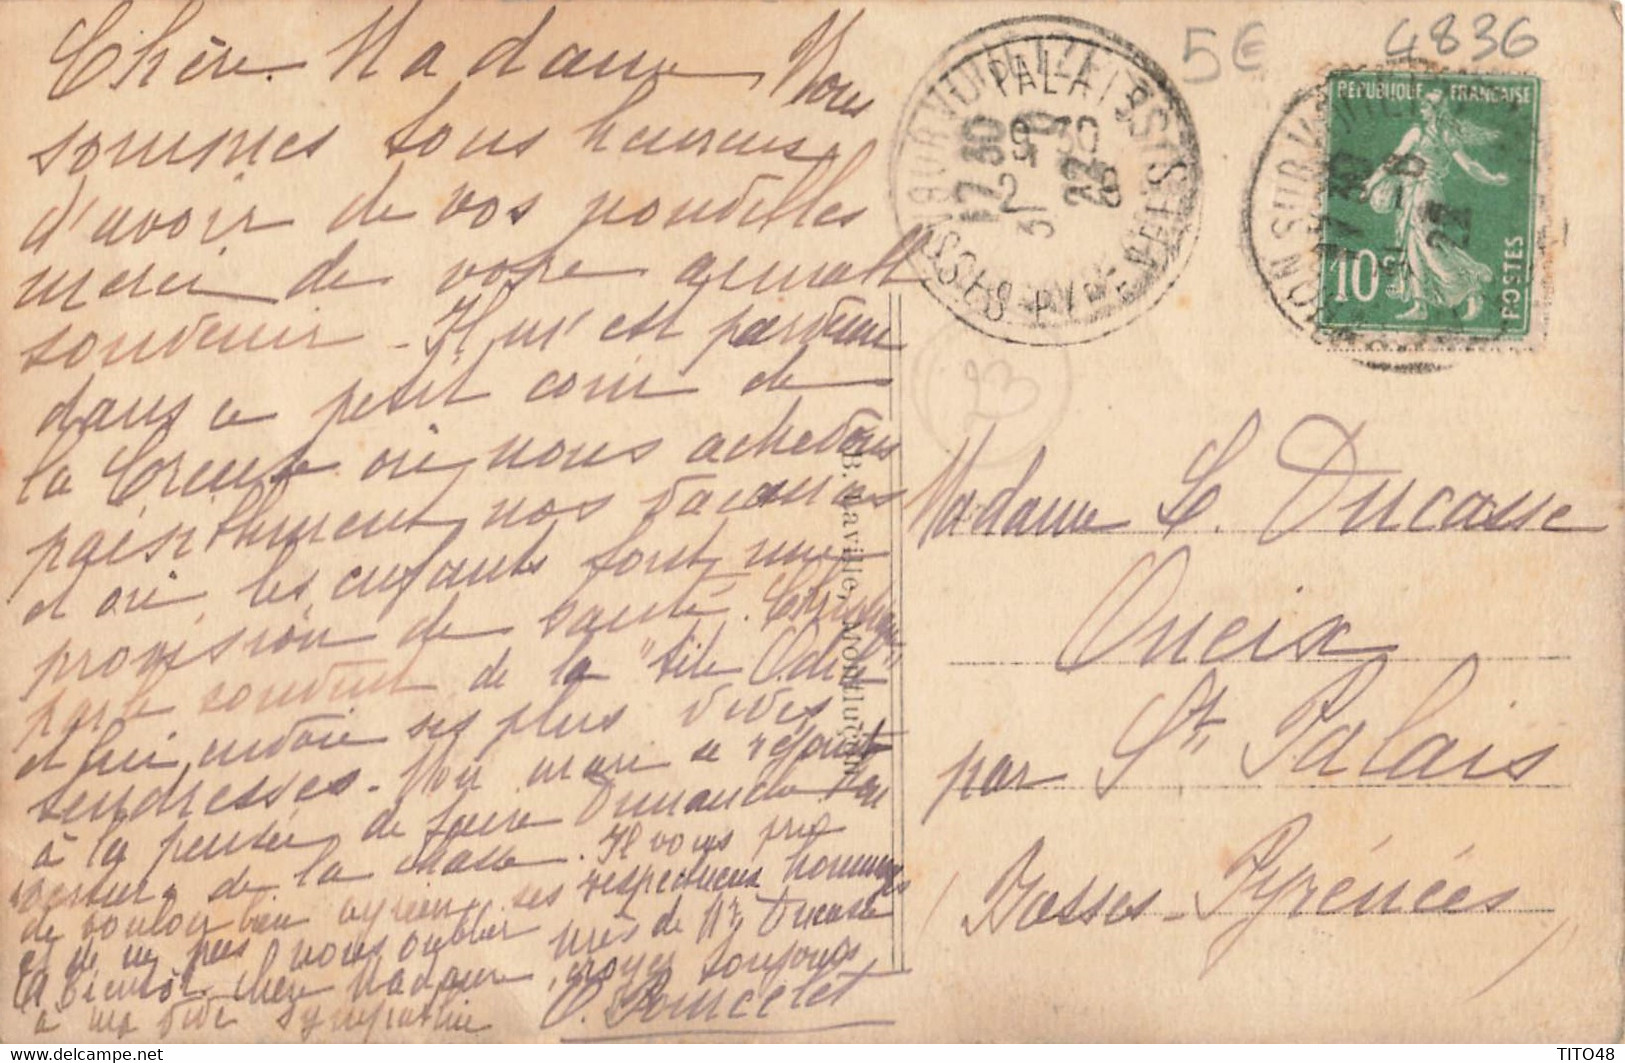 Chère Madame, Nous
sommes tous heureux
d'avoir de vos nouvelles
merci de votre
souvenir - Il m'est parvenu
dans ce petit coin de
la Creuse où nous achevons
paisiblement nos vacances
et où les enfants font une
provision de santé.
parle souvent de la "tite Odile"
et lui envoie ses plus vives
tendresses. Mon mari se réjouit
à la pensée de faire Dimanche l'
de la chasse. Il vous prie
de vouloir bien agréer ses respectueux hommages
et de ne pas nous oublier près de Mr Ducasse
A bientôt, chère Madame, croyez toujours
à ma vive sympathie O. Poncelet
B. Laville, Montluçon
5€
4836
23
PALAIS
9 30
2
BSSES PYRENEES
17 30
22
SUR
RÉPUBLIQUE FRANÇAISE
10c
POSTES
Madame L. Ducasse
Oneix
par St Palais
(Basses-Pyrénées)
TITO48